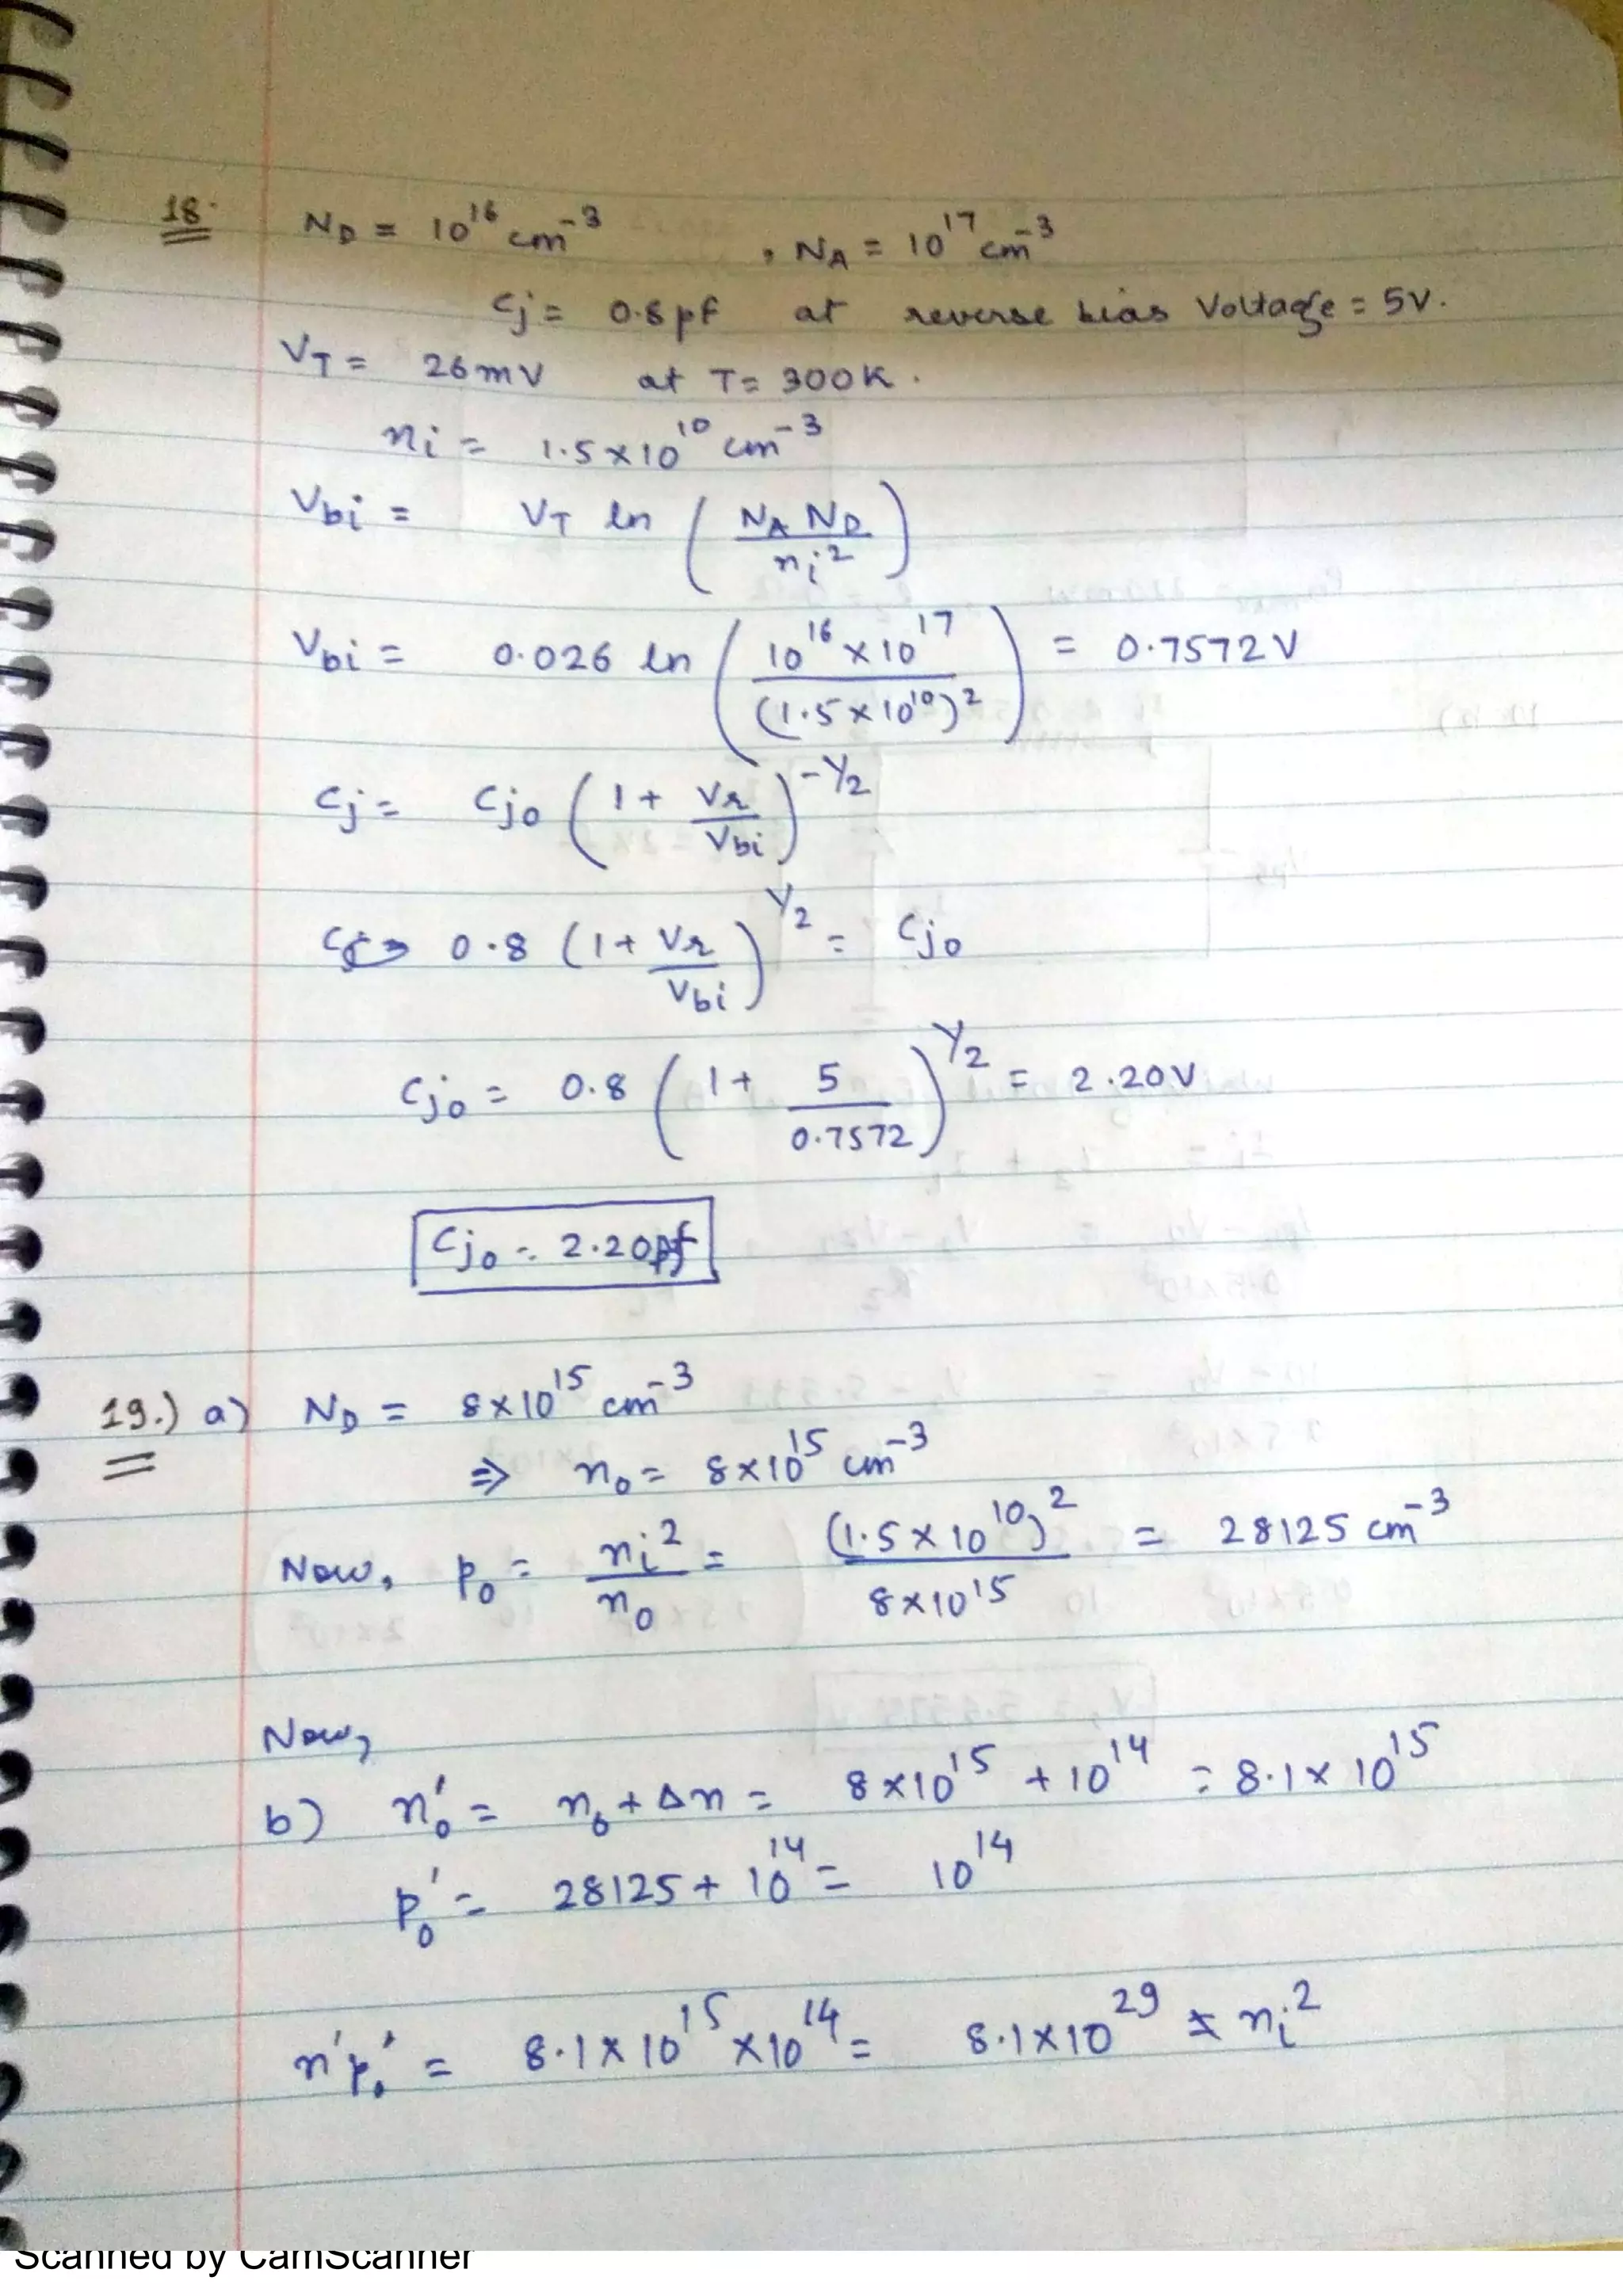 18. N_D = 10^16 cm^-3 , N_A = 10^17 cm^-3
Cj = 0.8 pf at reverse bias Voltage = 5V.
V_T = 26mV at T = 300K.
ni = 1.5×10^10 cm^-3
Vbi = V_T ln (N_A N_D / ni^2)
Vbi = 0.026 ln (10^16 × 10^17 / (1.5×10^10)^2) = 0.7572V
Cj = Cjo (1 + Vr / Vbi)^-1/2
0.8 (1 + Vr / Vbi)^1/2 = Cjo
Cjo = 0.8 (1 + 5 / 0.7572)^1/2 = 2.20V
Cjo = 2.20pf
19.) a) N_D = 8×10^15 cm^-3
⇒ n_o = 8×10^15 cm^-3
Now, p_o = ni^2 / n_o = (1.5×10^10)^2 / 8×10^15 = 28125 cm^-3
Now,
b) n_o' = n_o + Δn = 8×10^15 + 10^14 = 8.1×10^15
p_o' = 28125 + 10^14 = 10^14
n'p_o' = 8.1×10^15 × 10^14 = 8.1×10^29 ≠ ni^2
Scanned by CamScanner